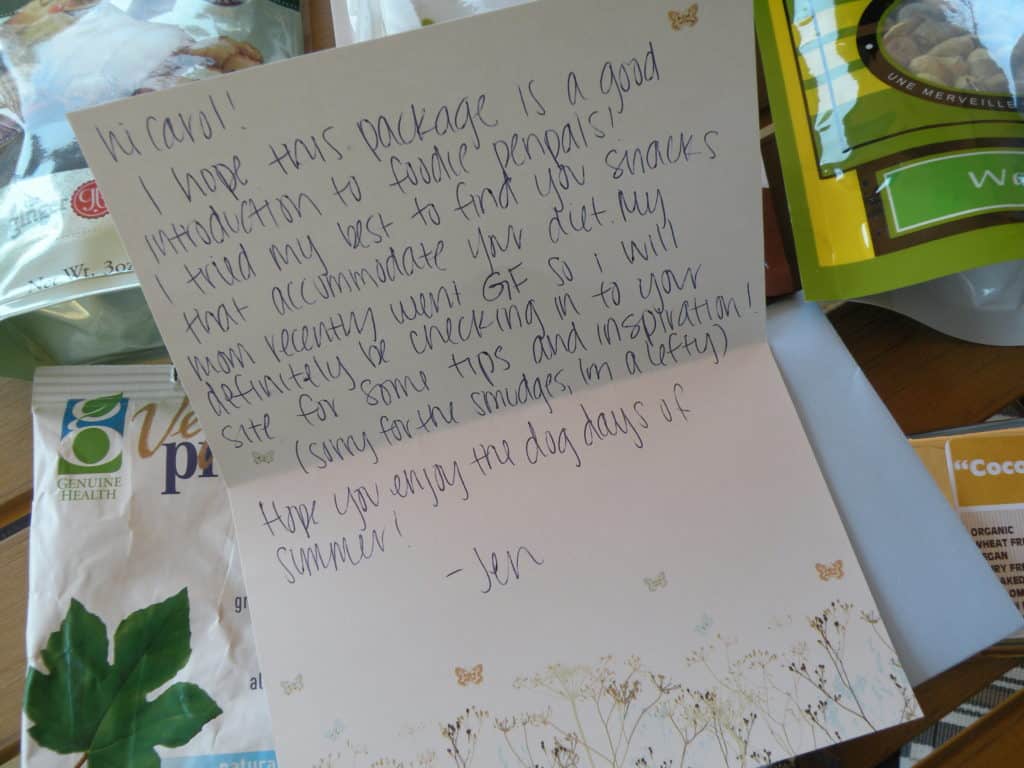 hi Carol!
I hope this package is a good
introduction to foodie penpals!
I tried my best to find you snacks
that accommodate your diet. My
mom recently went GF so i will
definitely be checking in to your
site for some tips and inspiration!
(sorry for the smudges, I'm a lefty)
Hope you enjoy the dog days of
summer!
- Jen
ginger
Net Wt. 3oz
GENUINE
HEALTH
UNE MERVEILLE
"Coco
ORGANIC
WHEAT FRE
natura